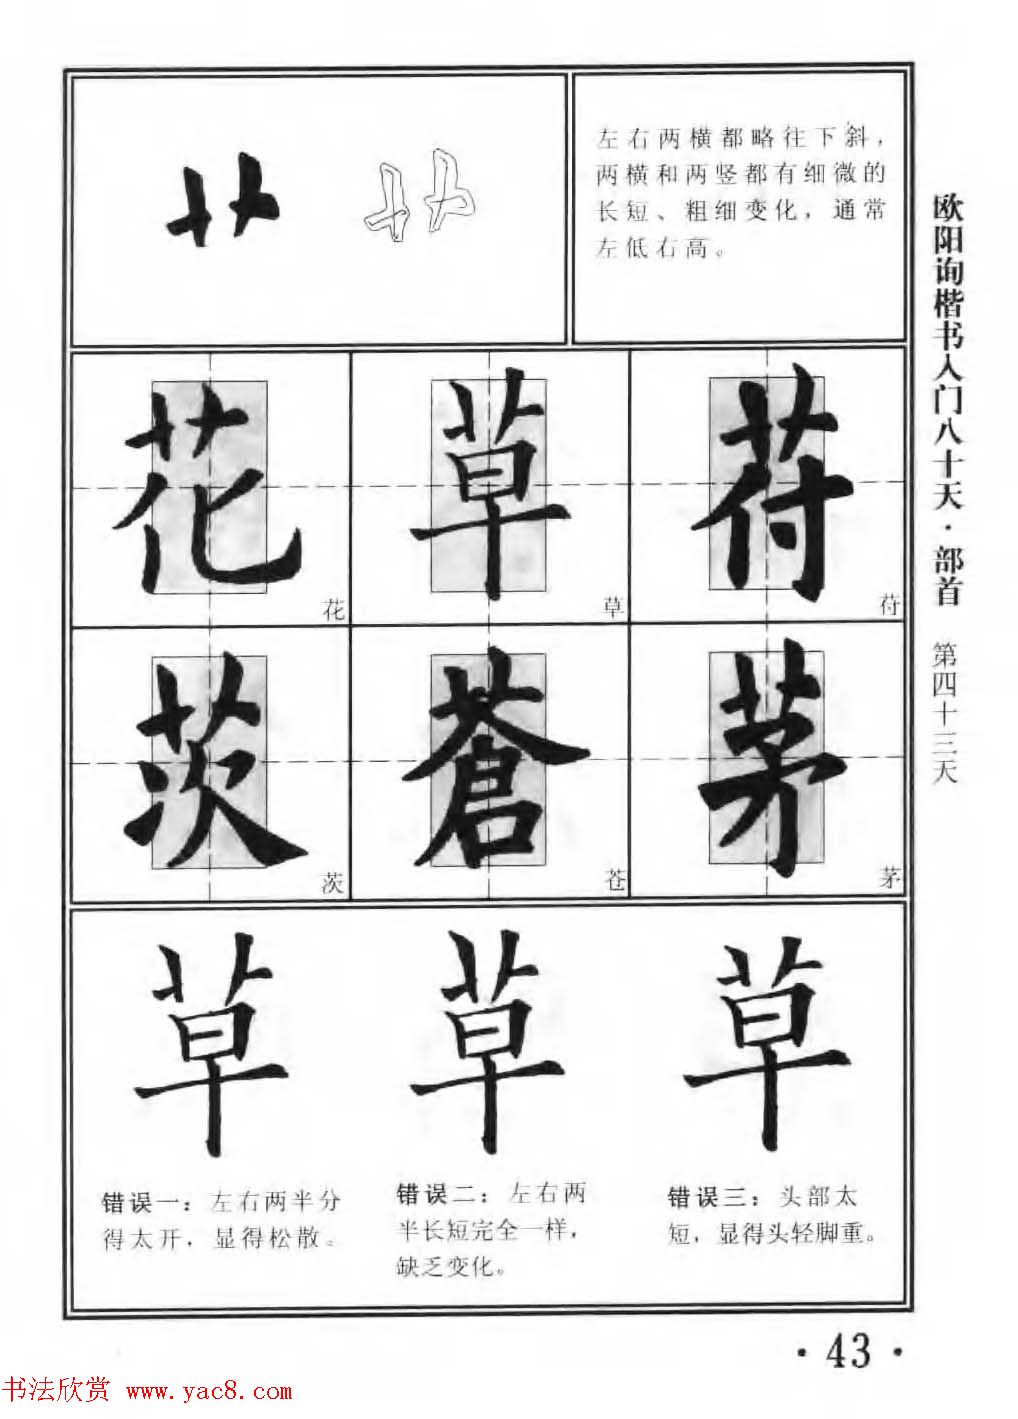 左右两横都略往下斜，
两横和两竖都有细微的
长短、粗细变化，通常
左低右高。
欧阳询楷书入门八十天·部首 第四十三天
花 草 苻
花 草 苻
茨 蒼 茅
茨 苍 茅
草 草 草
错误一：左右两半分
得太开，显得松散。
错误二：左右两
半长短完全一样，
缺乏变化。
错误三：头部太
短，显得头轻脚重。
·43·
书法欣赏 www.yac8.com